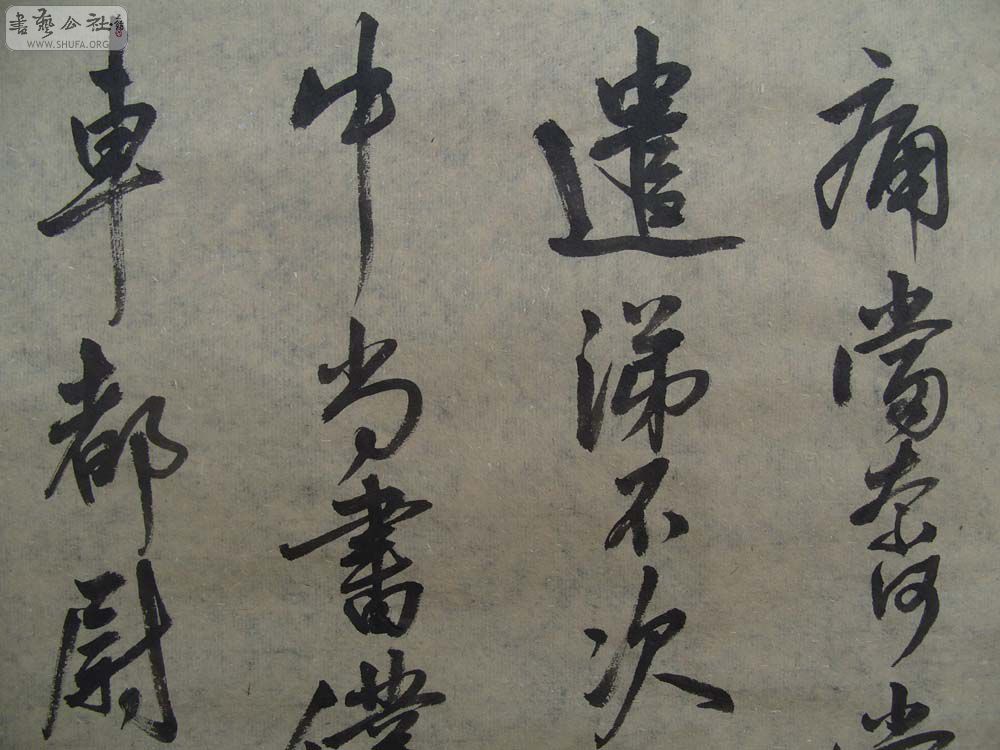 痛當奈何
遣涕不次
中尚書僕
車都尉
書藝公社
WWW.SHUFA.ORG